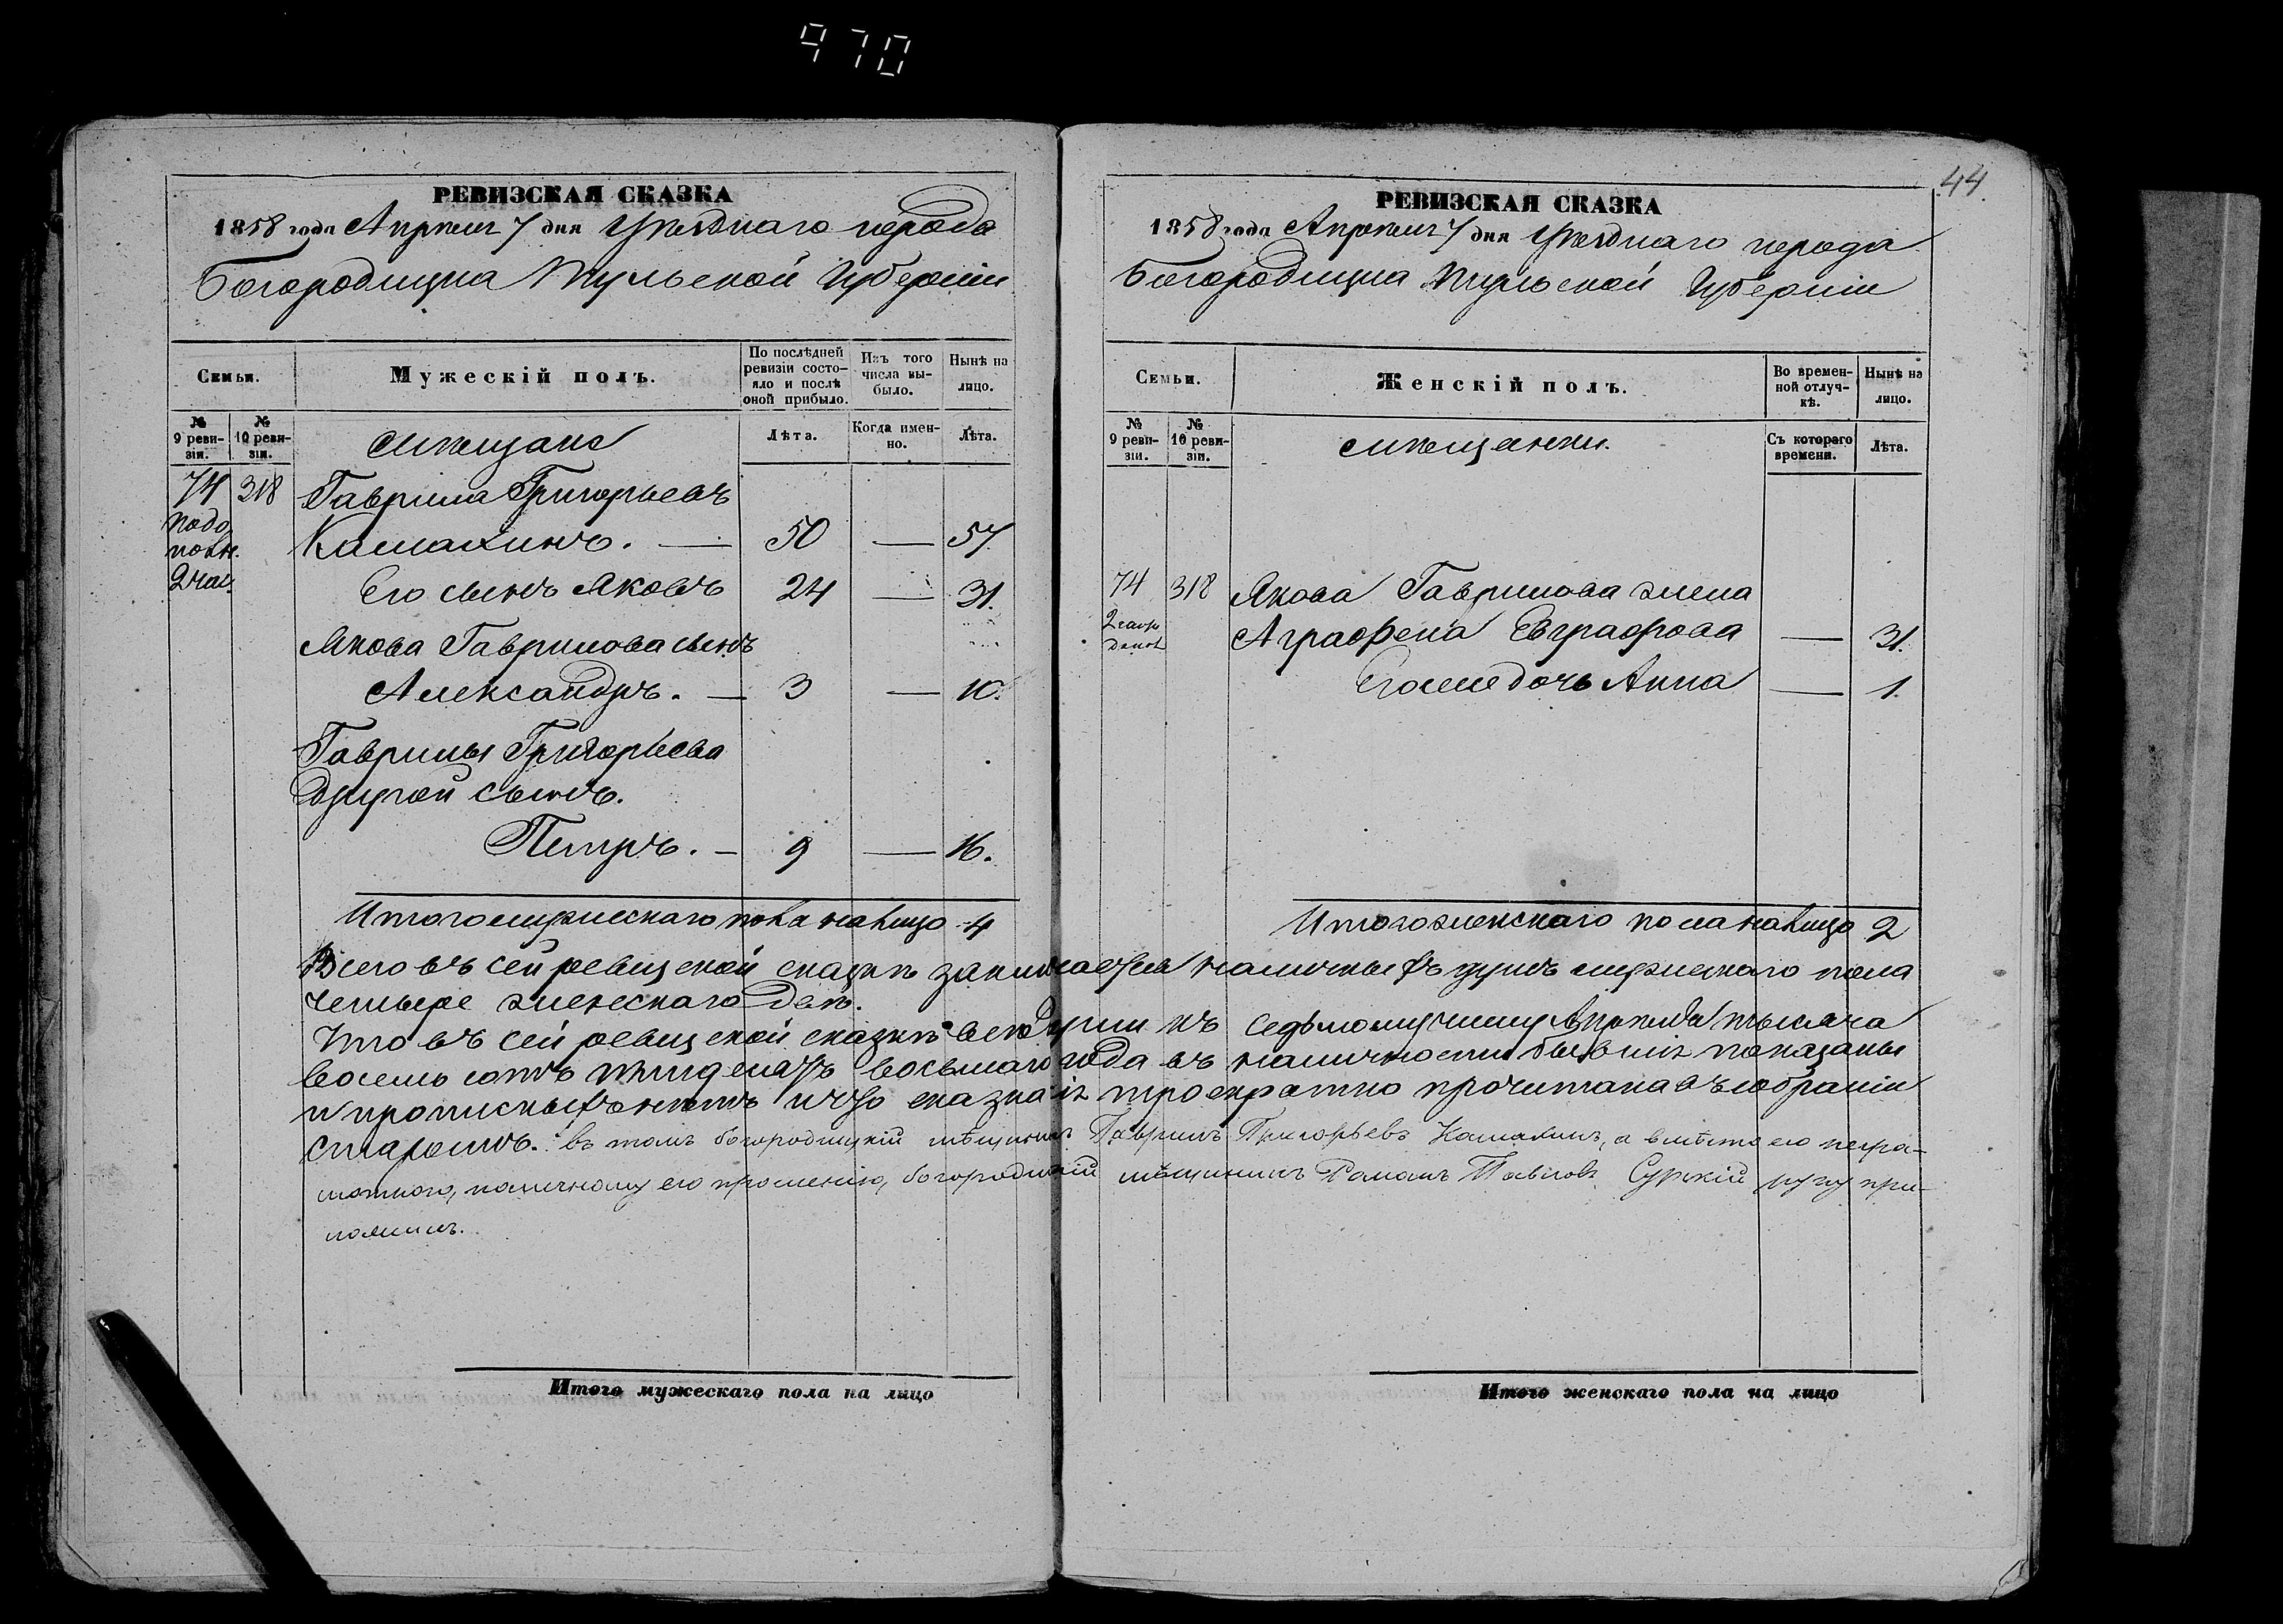 970
44.
РЕВИЗСКАЯ СКАЗКА
1858 года Апрѣля 7 дня Уѣзднаго города
Богородицка Тульской Губерніи
Семьи.
Мужескій полъ.
По послѣдней ревизіи состояло и послѣ оной прибыло.
Изъ того числа выбыло.
Нынѣ на лицо.
№ 9 ревизіи.
№ 10 ревизіи.
мѣщане
Лѣта.
Когда именно.
Лѣта.
74 318 Гаврила Григорьевъ
Камахинъ. — 50 — 57.
2 час.
Его сынъ Яковъ 24 — 31.
Якова Гаврилова сынъ
Александръ. — 3 — 10.
Гаврилы Григорьева
другой сынъ.
Петръ. — 9 — 16.
Итого мужескаго пола на лицо 4
РЕВИЗСКАЯ СКАЗКА
1858 года Апрѣля 7 дня Уѣзднаго города
Богородицка Тульской Губерніи
Семьи.
Женскій полъ.
Во временной отлучкѣ.
Нынѣ на лицо.
№ 9 ревизіи.
№ 10 ревизіи.
мѣщанки.
Съ котораго времени.
Лѣта.
74 318 Якова Гаврилова жена
Аграфена Евграфова — 31.
Его же дочь Анна — 1.
Итого женскаго пола на лицо 2
Всего въ сей ревизской сказкѣ заключается наличныхъ душъ мужескаго пола
четыре женскаго двѣ.
Что въ сей ревизской сказкѣ всѣ души къ седьмому числу Апрѣля тысяча
восемь сотъ пятдесятъ восьмаго года въ наличности бывшіе показаны
и прописныхъ нѣтъ и что сказка сія троекратно прочитана въ собраніи
старостъ. въ томъ богородицкій мѣщанинъ Гаврилъ Григорьевъ Камахинъ, а вмѣсто его негра-
мотнаго, по личному его прошенію, богородицкій мѣщанинъ Романъ Павловъ Сурскій руку при-
ложилъ.
Итого мужескаго пола на лицо
Итого женскаго пола на лицо